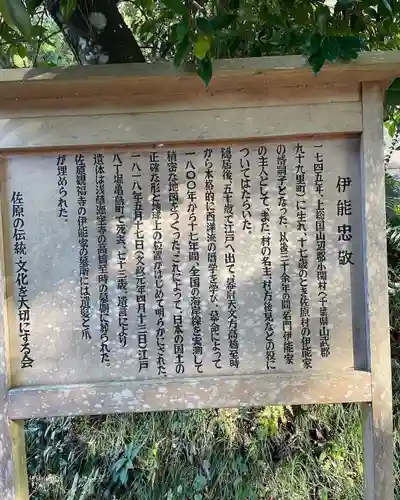 伊能忠敬
一七四五年、上総国山辺郡小関村(千葉県山武郡
九十九里町)に生れ、十七歳のとき佐原村の伊能家
の婿養子となった。以後三十余年の間名門伊能家
の主人として、また、村の名主、村方後見などの役に
ついてはたらいた。
隠居後、五十歳で江戸へ出て、幕府天文方高橋至時
から本格的に西洋流の暦学を学び、幕命によって
一八〇〇年から十七年間、全国の海岸線を実測して
精密な地図をつくった。これによって、日本の国土の
正確な形と地球上の位置がはじめて明らかにされた。
一八一八年五月十七日(文政元年四月十三日)江戸
八丁堀亀島町で死去、七十三歳。遺言により、
遺体は浅草源空寺の高橋至時の墓側に葬られた。
佐原観福寺の伊能家の墓所には遺髪と爪
が埋められた。
佐原の伝統・文化を大切にする会